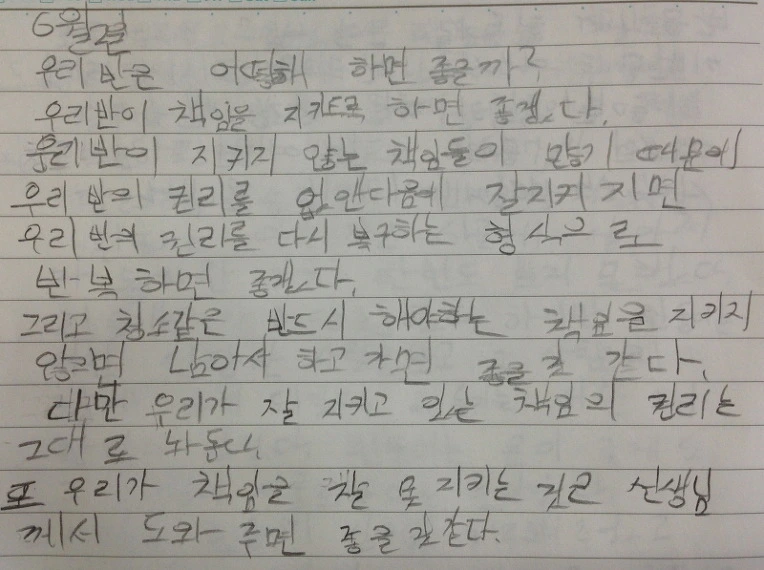 6월2일
우리 반은 어떻해 하면 좋을까?
우리반이 책임을 지키도록 하면 좋겠다.
우리반이 지키지 않는 책임들이 많기 때문에
우리 반의 권리를 없앤다음에 잘지켜 지면
우리 반의 권리를 다시 복구하는 형식으로
반복 하면 좋겠다.
그리고 청소같은 반드시 해야하는 책임을 지키지
않으면 남아서 하고 가면 좋을 것 같다.
다만 우리가 잘 지키고 있는 책임의 권리는
그대로 놔둔다.
또 우리가 책임을 잘 못 지키는 것은 선생님
께서 도와 주면 좋을 것 같다.